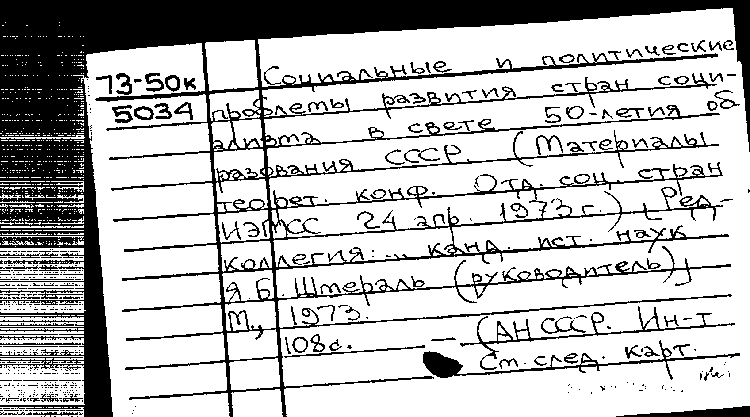 73-50к
5034
Социальные и политические
проблемы развития стран соци-
ализма в свете 50-летия об
разования СССР. (Материалы
теорет. конф. Отд. соц. стран
ИЭМСС 24 апр. 1973 г.) [Ред-
коллегия: ... канд. ист. наук
Я.Б. Шмераль (руководитель)]
М., 1973.
108с. — (АН СССР. Ин-т
См. след. карт.